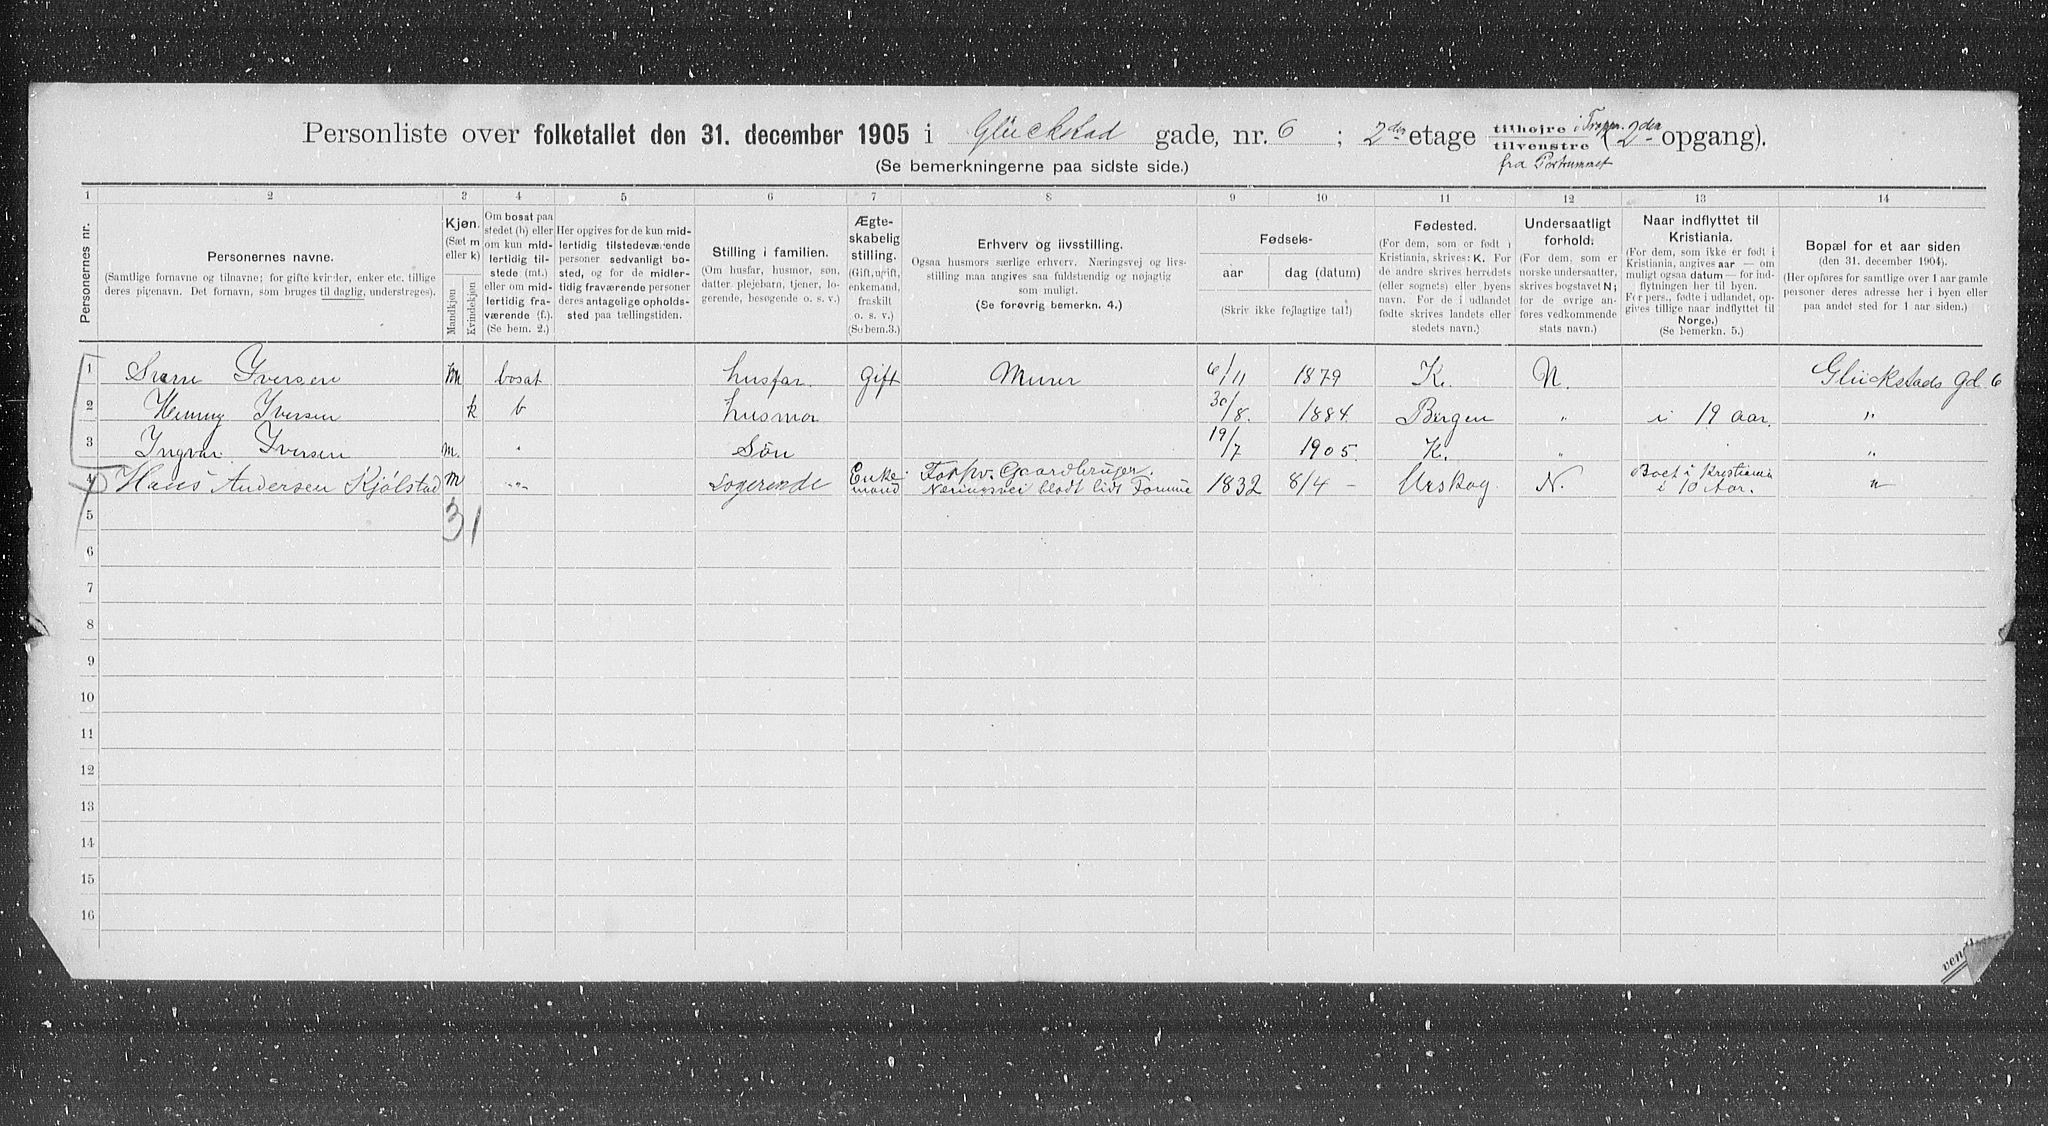 Personliste over folketallet den 31. december 1905 i Glückstad gade, nr. 6 ; 2den etage tilhøjre i Troppen 2den opgang).
tilvenstre
fra Portrummet
(Se bemerkningerne paa sidste side.)
1 2 3 4 5 6 7 8 9 10 11 12 13 14
Personernes nr.
Personernes navne.
(Samtlige fornavne og tilnavne; for gifte kvinder, enker etc. tillige
deres pigenavn. Det fornavn, som bruges til daglig, understreges).
Kjøn.
(Sæt m
eller k)
Mandkjøn
Kvindekjøn
Om bosat paa
stedet (b) eller
om kun mid-
lertidig til-
stede (mt.)
eller om mid-
lertidig fra-
værende (f.).
(Se bem. 2.)
Her opgives for de kun mid-
lertidig tilstedeværende
personer sedvanligt bo-
sted, og for de midler-
tidig fraværende personer
deres antagelige opholds-
sted paa tællingstiden.
Stilling i familien.
(Om husfar, husmor, søn,
datter, plejebarn, tjener, lo-
gerende, besøgende o. s. v.)
Ægte-
skabelig
stilling.
(Gift, ugift,
enkemand,
fraskilt
o. s. v.)
(Se bem. 3.)
Erhverv og livsstilling.
Ogsaa husmors særlige erhverv. Næringsvej og livs-
stilling maa angives saa fuldstændig og nøjagtig
som muligt.
(Se forøvrig bemerkn. 4.)
Fødsels-
aar dag (datum)
(Skriv ikke fejlagtige tal!)
Fødested.
(For dem, som er født i
Kristiania, skrives: K. For
de andre skrives herredets
(eller sognets) eller byens
navn. For de i udlandet
fødte skrives landets eller
stedets navn.)
Undersaatligt
forhold.
(For dem, som er
norske undersaatter,
skrives bogstavet N;
for de øvrige an-
føres vedkommende
stats navn.)
Naar indflyttet til
Kristiania.
(For dem, som ikke er født i
Kristiania, angives aar — om
muligt ogsaa datum — for ind-
flytningen her til byen.
For pers., fødte i udlandet, op-
gives tillige naar indflyttet til
Norge.)
(Se bemerkn. 5.)
Bopæl for et aar siden
(den 31. december 1904).
(Her opføres for samtlige over 1 aar gamle
personer deres adresse her i byen eller
paa andet sted for 1 aar siden.)
1 Sverre Iversen m bosat husfar. gift Murer 6/11 1879 K. N. Glückstads gd. 6
2 Henny Iversen k b husmor 30/8. 1884. Bergen " i 19 aar. "
3 Ingvar Iversen m. " Søn 19/7 1905. K. " "
4 Hans Andersen Kjølstad m " Logerende Enke Forhv. Gaardbruger. 1832 8/4 - Urskog N. Boet i Kristiania "
mand Næringsvei blodt lidt Formue i 10 Aar.
5 3 1
6
7
8
9
10
11
12
13
14
15
16